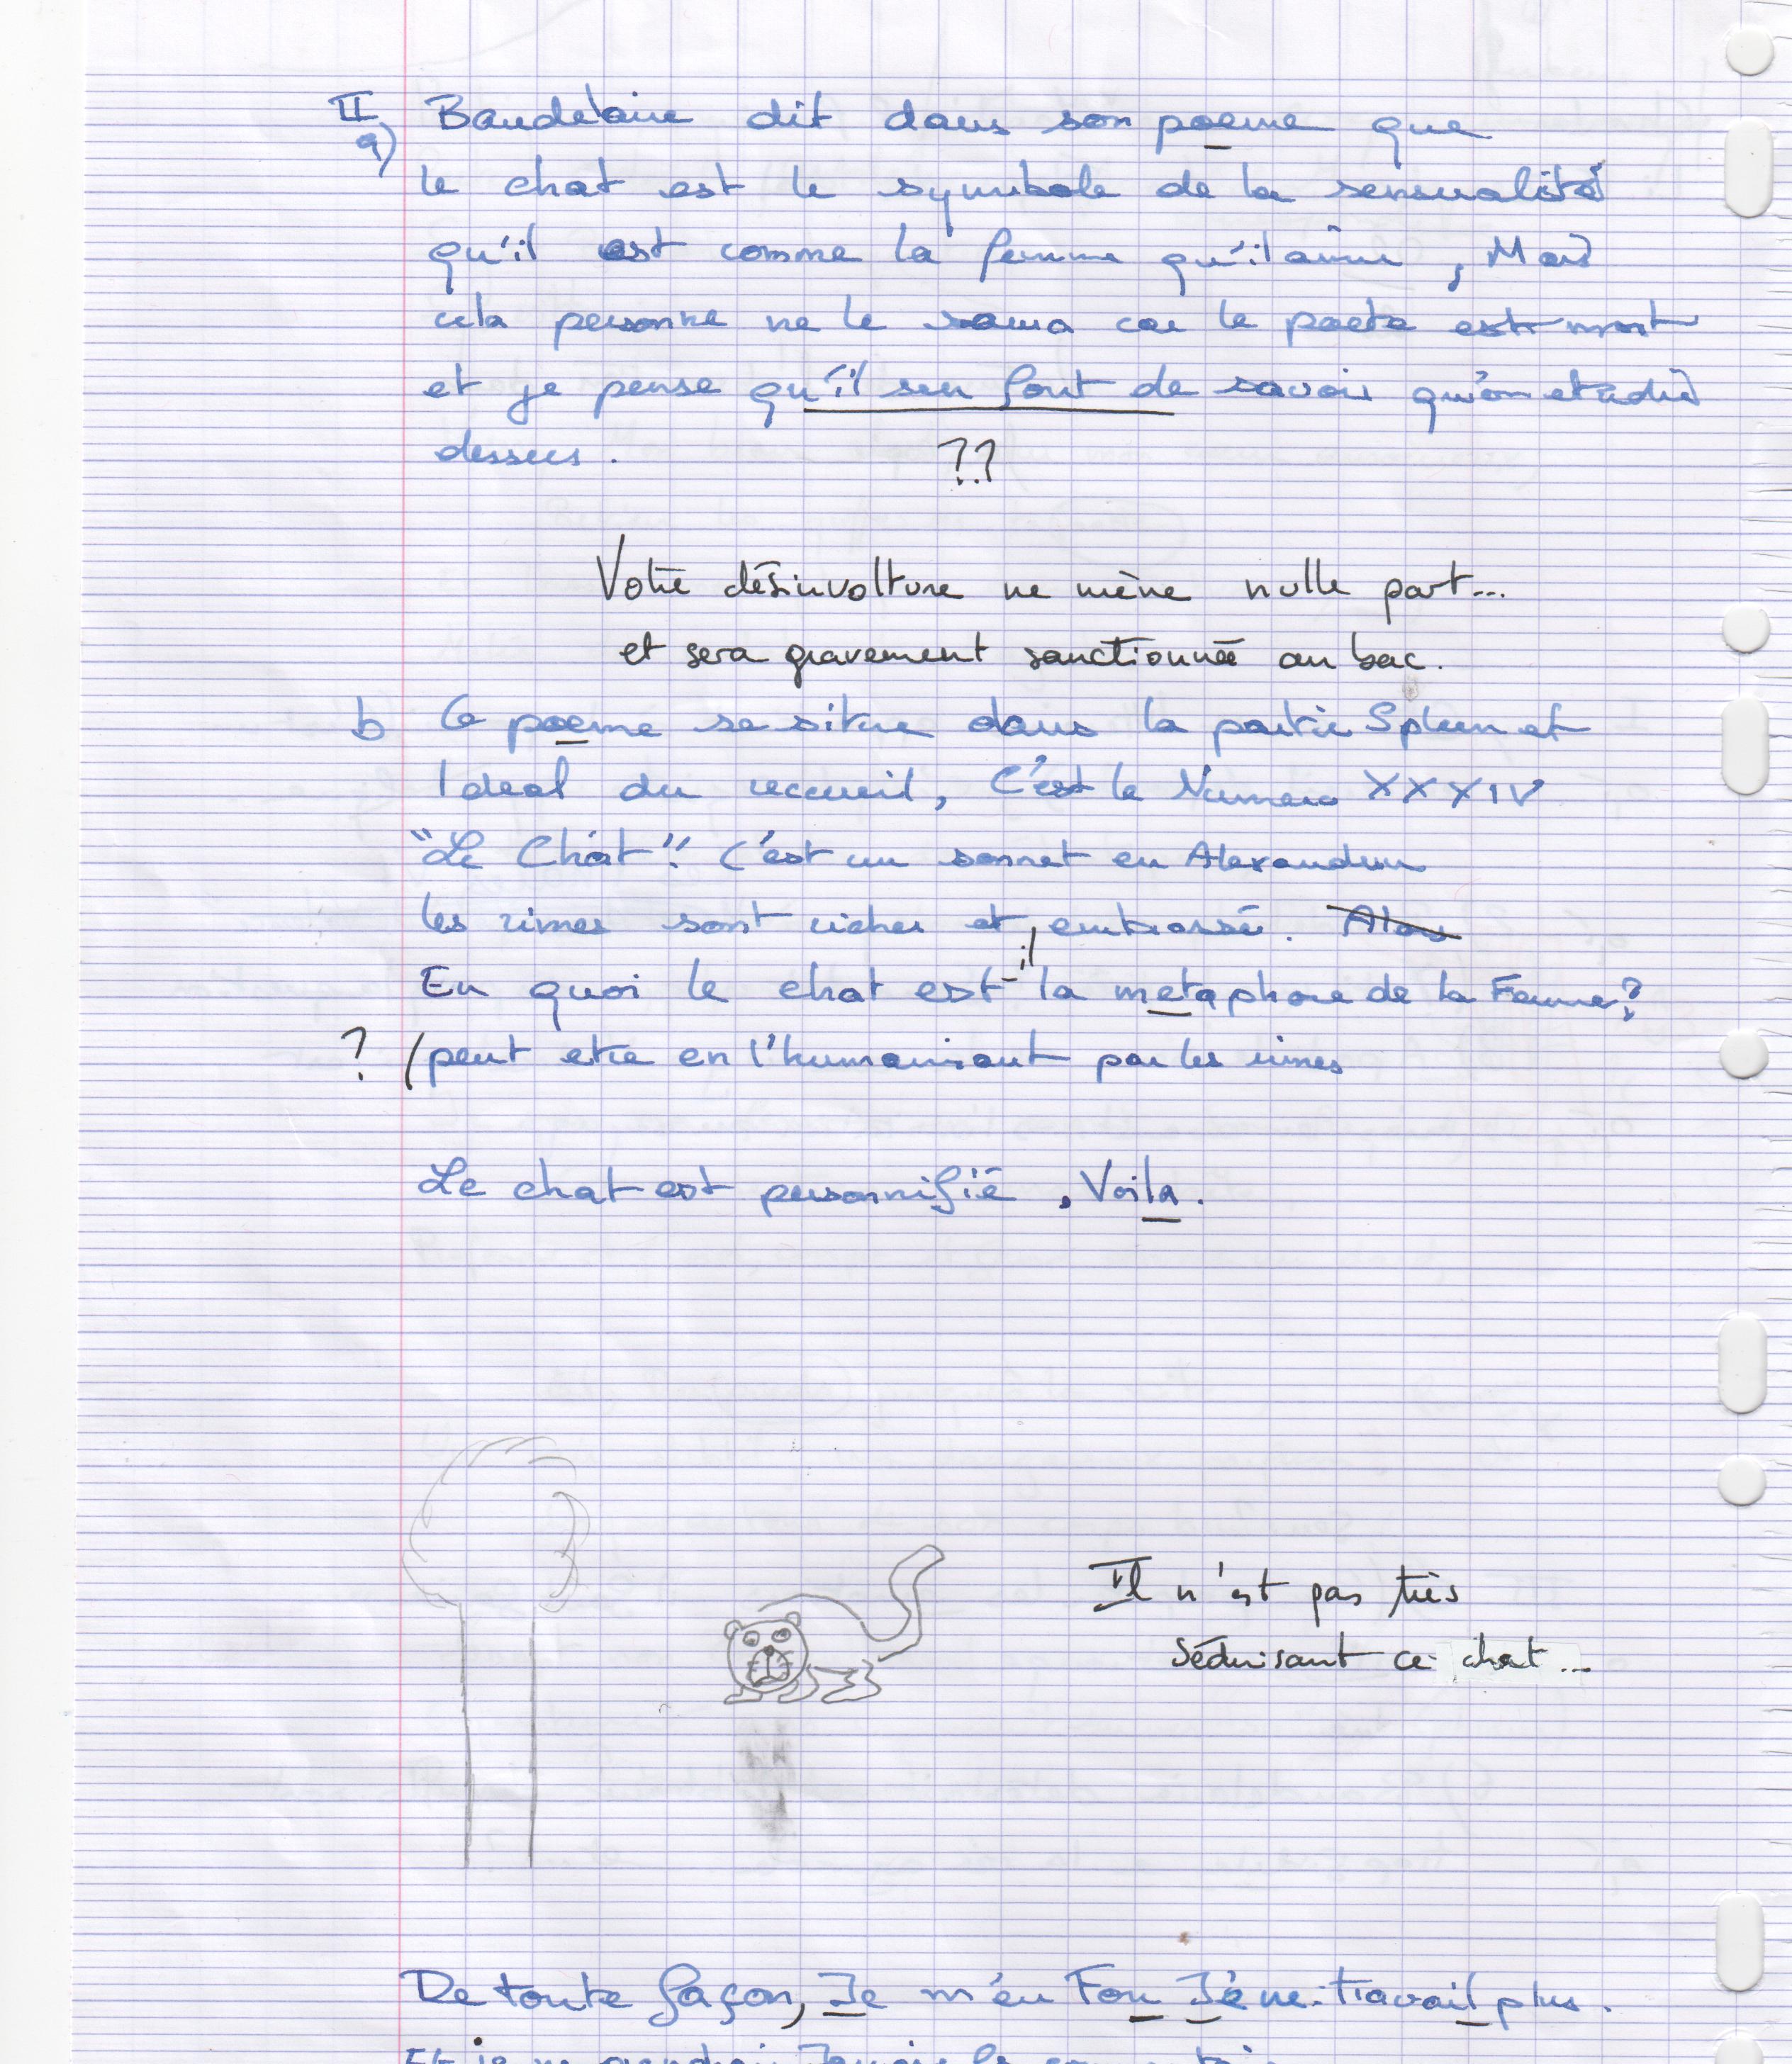 II Baudelaire dit dans son poeme que
a) le chat est le symbole de la sensualité
qu'il est comme la femme qu'il aime, Mais
cela personne ne le saura car le poete est mort
et je pense qu'il sen fout de savoir qu'on etudie
dessus.
??
Votre désinvolture ne mène nulle part...
et sera gravement sanctionnée au bac.
b Ce poeme se situe dans la partie Spleen et
Ideal du recueil, C'est le Numero XXXIV
"Le Chat". C'est un sonnet en Alexandrin
les rimes sont riches et embrassé. Alors
En quoi le chat est-il la metaphore de la Femme?
? / peut etre en l'humanisant par les rimes
Le chat est personnifié, Voila.
Il n'est pas très
séduisant ce chat...
De toute façon, Je m'en Fou J'e ne travail plus.
Et je ne